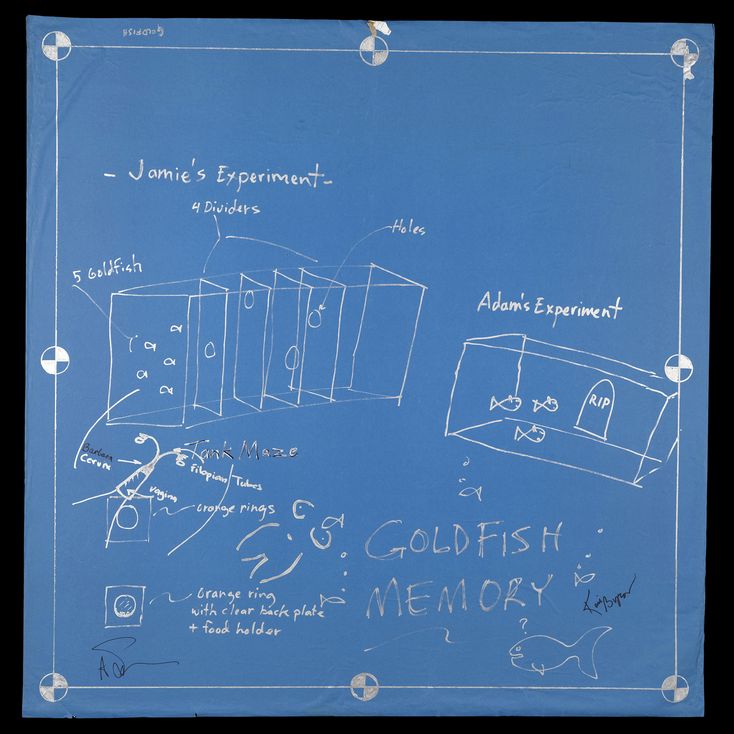 GOLDFISH
- Jamie's Experiment -
4 Dividers
Holes
5 Goldfish
Adam's Experiment
RIP
Tank Maze
Barbara
Cervix
Filopian Tubes
vagina
orange rings
GOLDFISH
MEMORY
Orange ring
with clear back plate
+ food holder
?